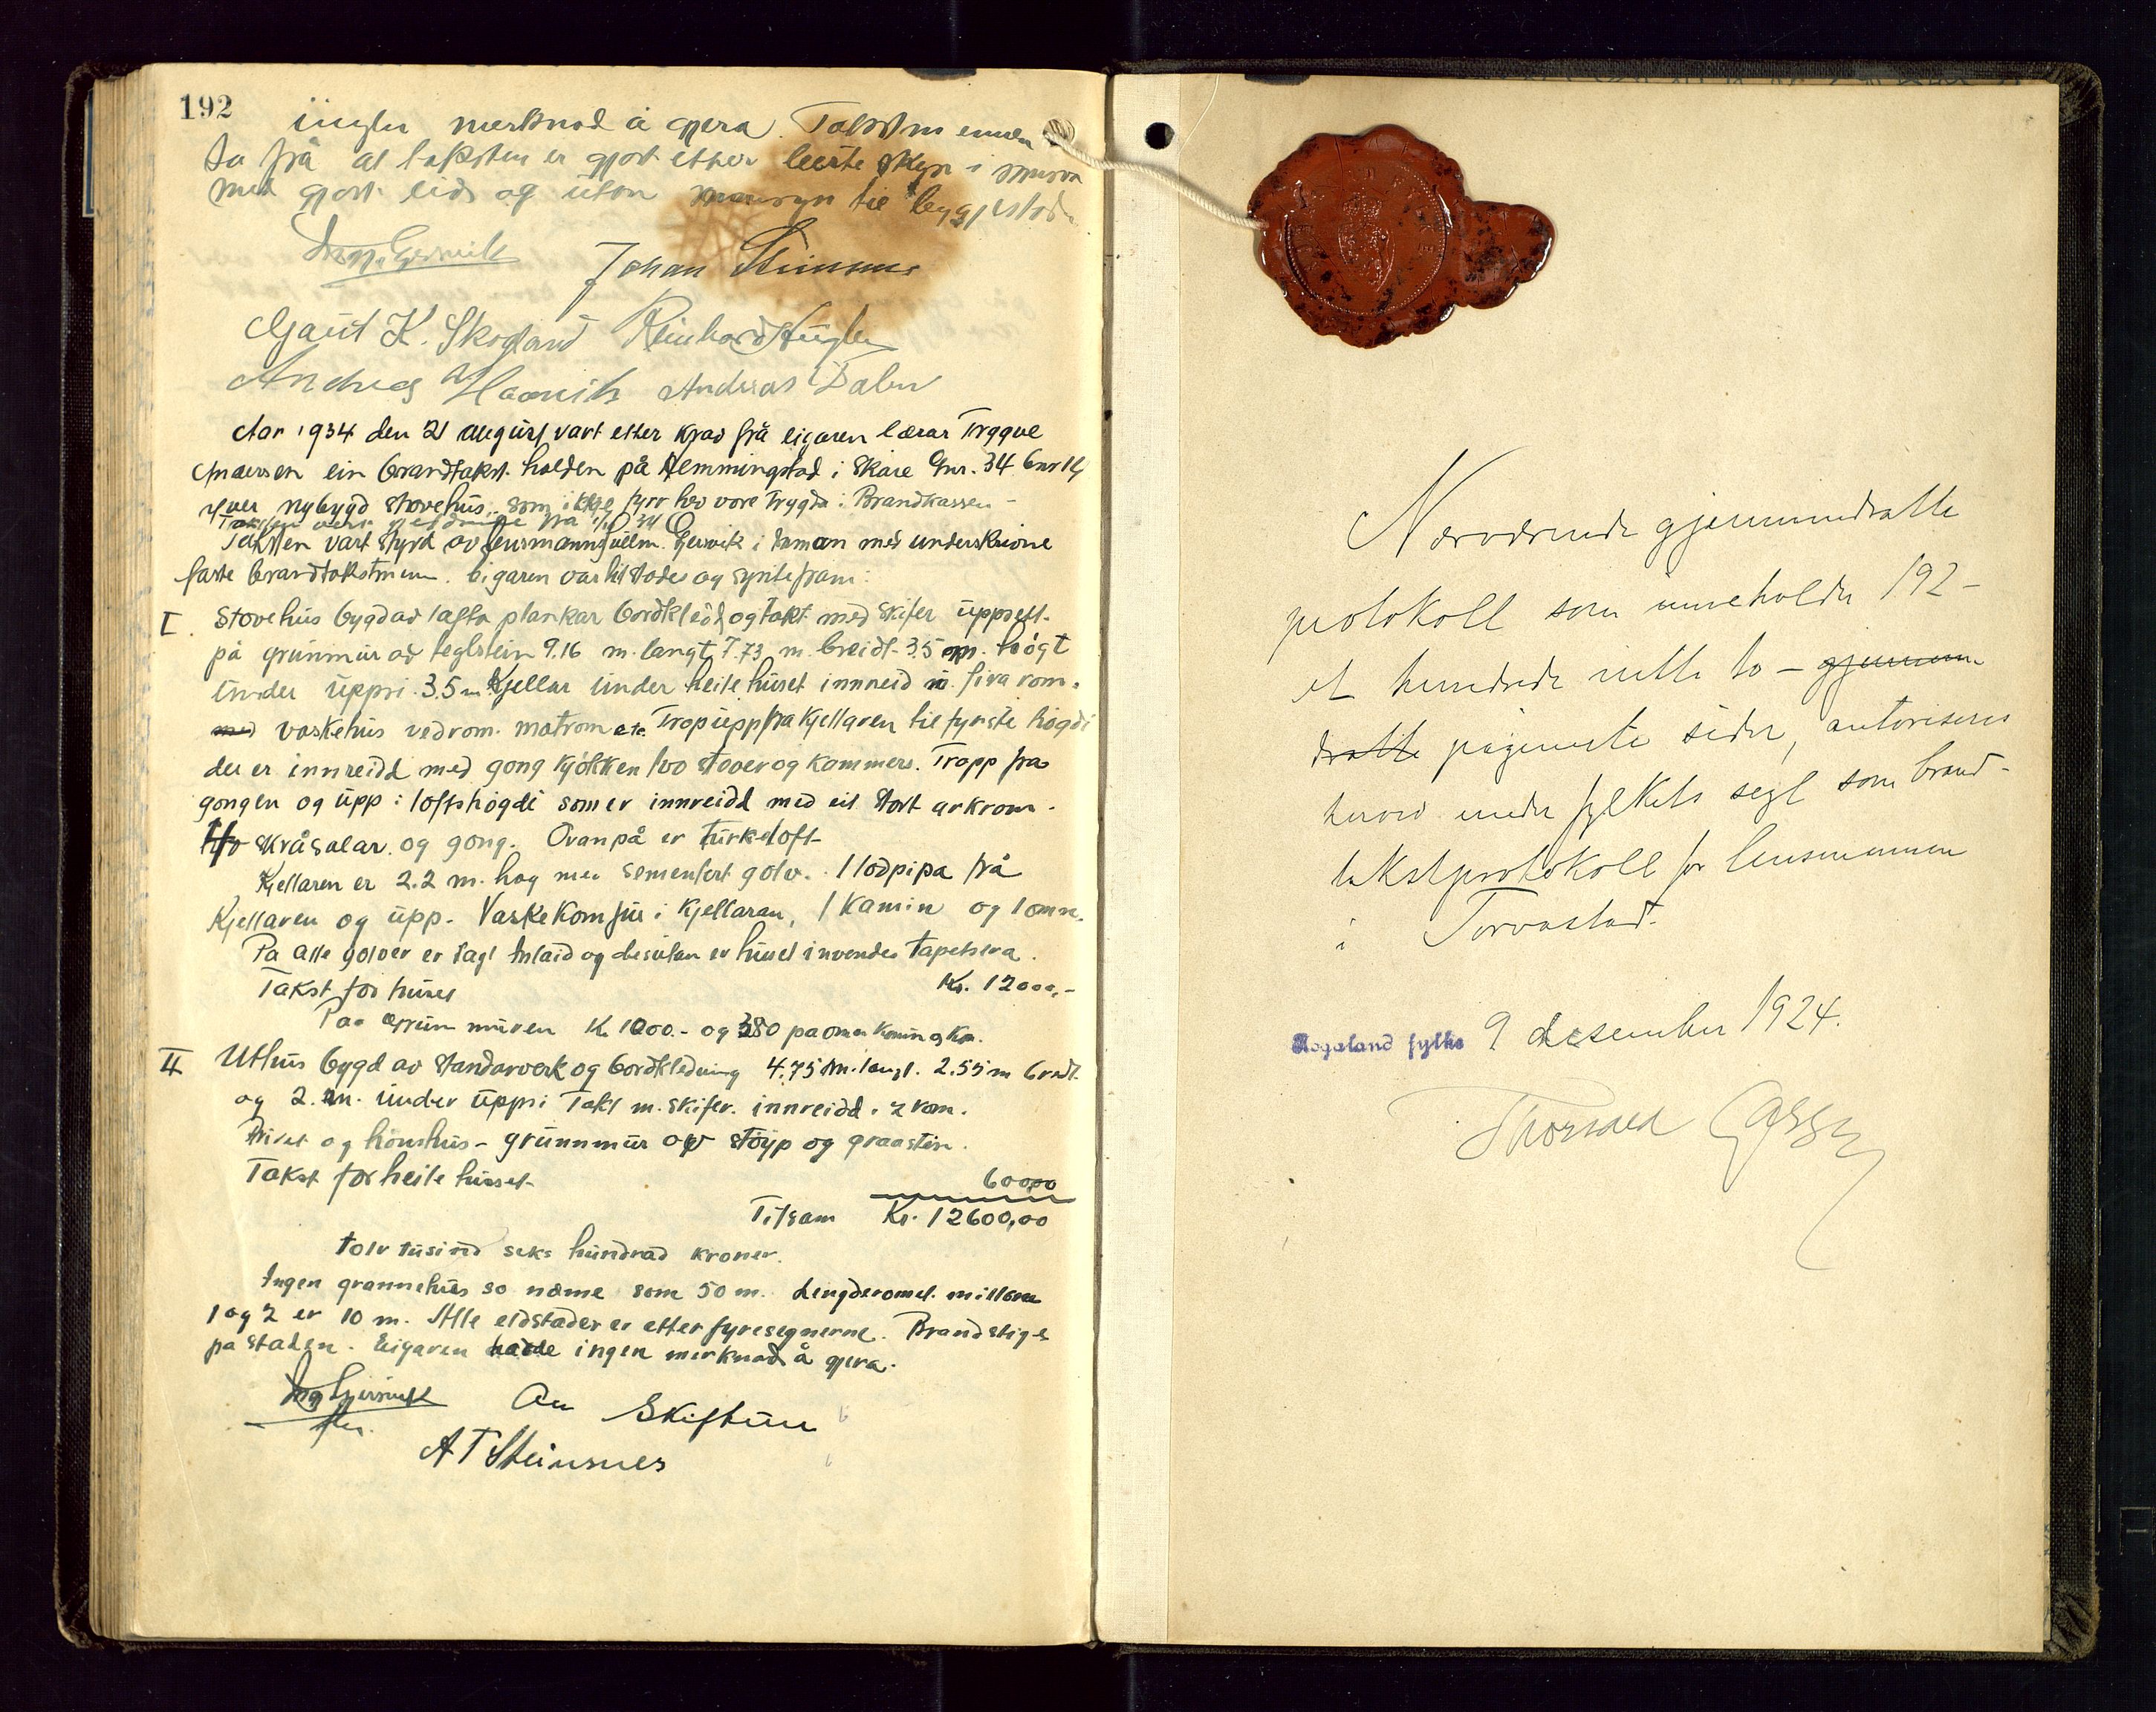 192
merknad å gjera. Takstm
ta frå at taksten er gjort etter beste skyn i
med gjort eid og utan umsyn til byggjestad
Johan Steinsnes
Gaut K. Skogland Reinhard
Andreas Haavik Andreas Dalen
Aar 1934 den 21 august vart etter krav frå eigaren lærar Trygve
ein brandtakst halden på Hemmingstad i Skåre Gnr. 34 bnr 14
yver nybygd stovehus som ikkje fyrr hev vore trygda i Brandkassen -
Taksten vart styrd av lensmannsfullm. Gjersvik i saman med underskrivne
faste brandtakstmenn. Eigaren var tilstades og synte fram:
I. Stovehus bygd av lafta plankar bordkledd og takt med skifer uppsett
på grunnmur av teglstein 9.16 m. langt, 7.73 m. breidt 3.5 m. høgt
under uppsi. 3.5 m Kjellar under heile huset innreid m. fira rom.
med vaskehus vedrom. matrom etc. Trop upp fra Kjellaren til fyrste høgdi
der er innreidd med gong kjøkken tvo stover og kammers. Tropp fra
gongen og upp i loftshøgdi som er innreidd med eit stort arkrom.
tvo skråsalar og gong. Ovanpå er turkeloft
Kjellaren er 2.2 m. høg med sementert golv. 1 lodpipa frå
Kjellaren og upp. Vaskekomfur i Kjellaran, 1 Kamin og 1 omn.
Pa alle golver er lagt inlaid og desutan er huset invendes tapetsera.
Takst for huset Kr. 12000,-
Paa grunnmuren Kr 1000.- og 380 pa omn kamin og kom.
II Uthus bygd av standarverk og bordkledning 4.75 m. langt. 2.55 m bredt
og 2. m. under uppsi Takt m. skifer. innreidd i 2 rom.
Privet og hønshus - grunnmur av støyp og graastein.
Takst for heile huset 60000
Tilsam Kr. 12600,00
tolv tusind seks hundrad kroner.
Ingen grannehus so næme som 50 m. Lengderomet millom
1 og 2 er 10 m. Alle eldstader er etter fyresegnerne. Brandstige
på staden. Eigaren hadde ingen merknad å gjera.
Skiftun
A T Steinsnes
Nærværende gjennemdratte
protokoll som inneholder 192 -
et hundrede nitti to - gjennem
dratte paginerte sider, autoriseres
herved under fylkets segl som brand-
takstprotokoll for lensmannen
i Torvastad.
Rogaland fylke 9 desember 1924.
Thorvald